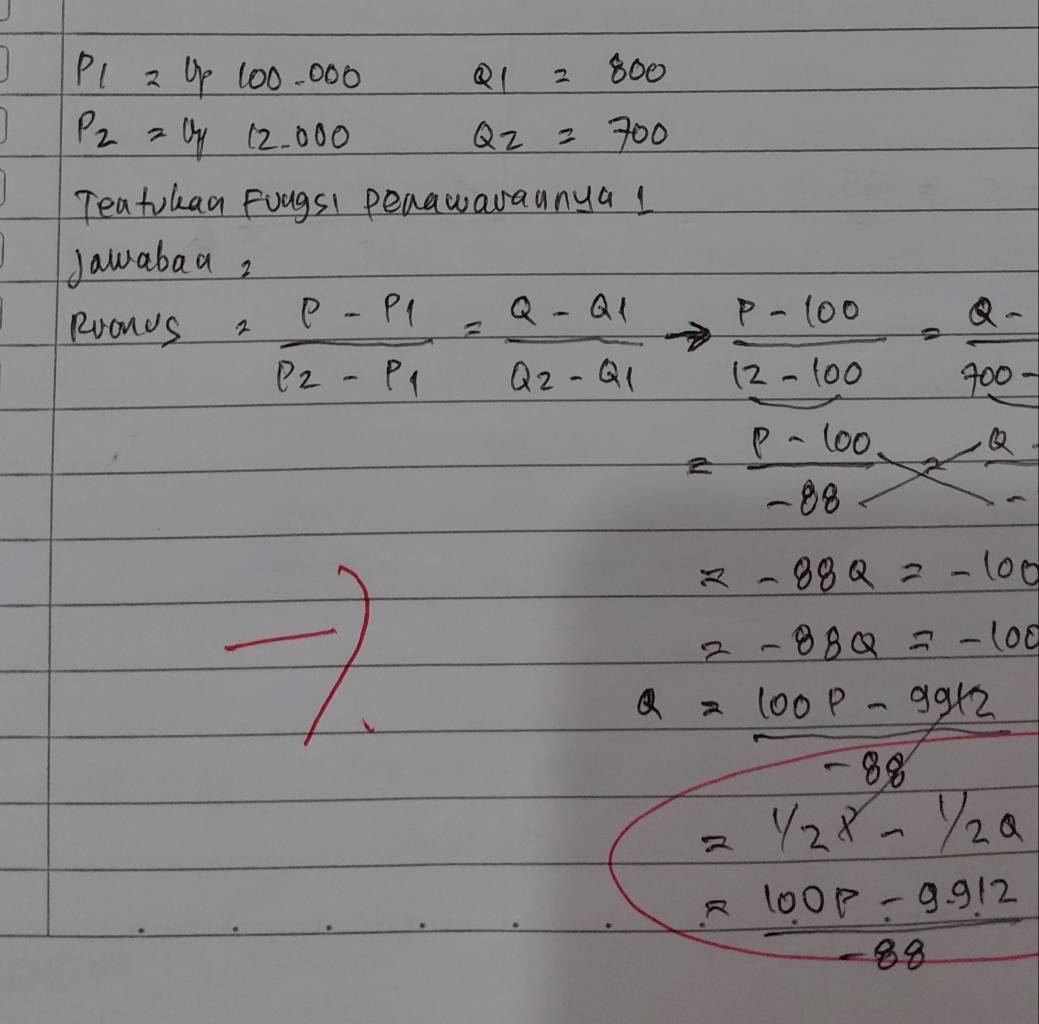 P1 = Rp 100.000 Q1 = 800
P2 = Rp 12.000 Q2 = 700
Tentukan Fungsi penawarannya !
Jawaban :
Rumus = P - P1 / P2 - P1 = Q - Q1 / Q2 - Q1 → P - 100 / 12 - 100 = Q - / 700 -
= P - 100 / -88 = Q - / -
= -88Q = -100
= -88Q = -100
Q = 100P - 9912 / -88
= 1/2 P - 1/2 Q
= 100P - 9.912 / -88